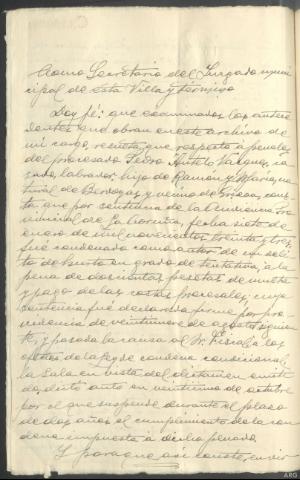 Como Secretario del Juzgado muni-
cipal de esta Villa y término
Doy fé: que examinados los antece-
dentes que obran en este archivo de
mi cargo, resulta, que respecto a penales
del procesado Pedro Vazquez, ca-
sado, labrador, hijo de Ramón y María, na-
tural de y vecino de cons-
ta que por sentencia de la Audiencia Pro-
vincial de La Coruña, fecha siete de
enero de mil novecientos treinta y tres,
fué condenado como autor de un deli-
to de hurto en grado de tentativa, a la
pena de doscientas pesetas de multa
y pago de las costas procesales; cuya
sentencia fué declarada firme por pro-
videncia de veintiuno de agosto siguien-
te, y pasada la causa al Sr. Fiscal a los
efectos de la ley de condena condicional,
la Sala en vista del dictamen emiti-
do, dictó auto en veintiuno de octubre
por el que suspende durante el plazo
de dos años el cumplimiento de la con-
dena impuesta a dicho penado.
Y para que así conste,
ARG